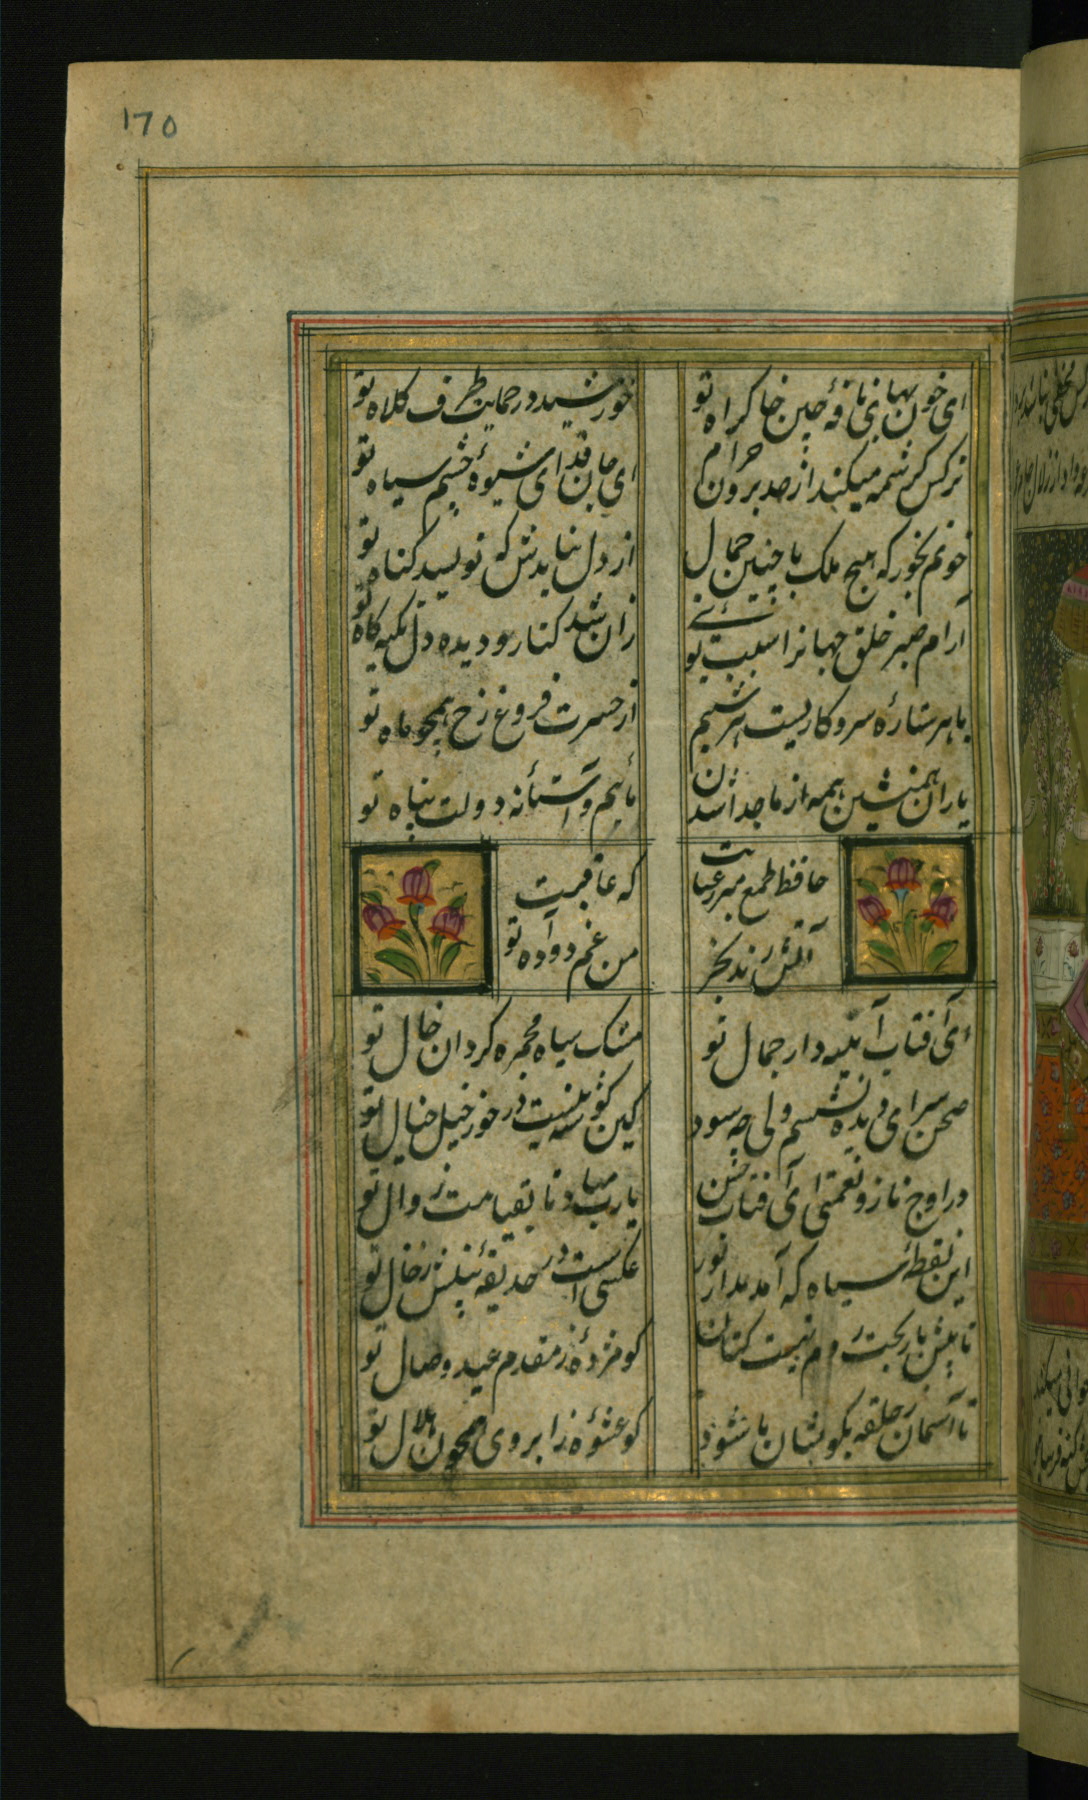 170
ای خون بهای نافهٔ چین خاک راه تو
خورشید در حمایت طرف کلاه تو
نرکس کرشمه میکند از حد برون خرام
ای جان فدای شیوهٔ چشم سیاه تو
خونم بخور که هیچ ملک با چنین جمال
از دل نیایدش که نویسد کناه تو
آرام صبر خلق جهانرا سبب توئی
زان شد کنار رود دیده دل تکیه کاه تو
با هر ستارهٔ سر و کاریست هر شبم
از حسرت فروغ رخ همچو ماه تو
یاران همنشین همه از ما جدا شدن
مائیم و آستانه دولت پناه تو
حافظ طمع مبر ز عنایت
که عاقبت
آتش زند بخر
من غم دود آه تو
ای آفتاب آینه دار جمال تو
مشک سیاه مجمره کردان خال تو
صحن سرای دیده نشستم ولی چه سود
کین کوشه نیست در خور خیل خیال تو
در اوج ناز و نعمتی ای آفتاب حسن
یا رب مباد تا بقیامت زوال تو
این نقطهٔ سیاه که آمد مدار نور
عکسی است در حدیقهٔ بینش ز خال تو
تا پیش بار بخت روم نیست کنان
کو مژدهٔ ز مقدم عید وصال تو
تا آسمان ز حلقه بکوشان ما شود
کو عشوهٔ ز ابروی همچون هلال تو